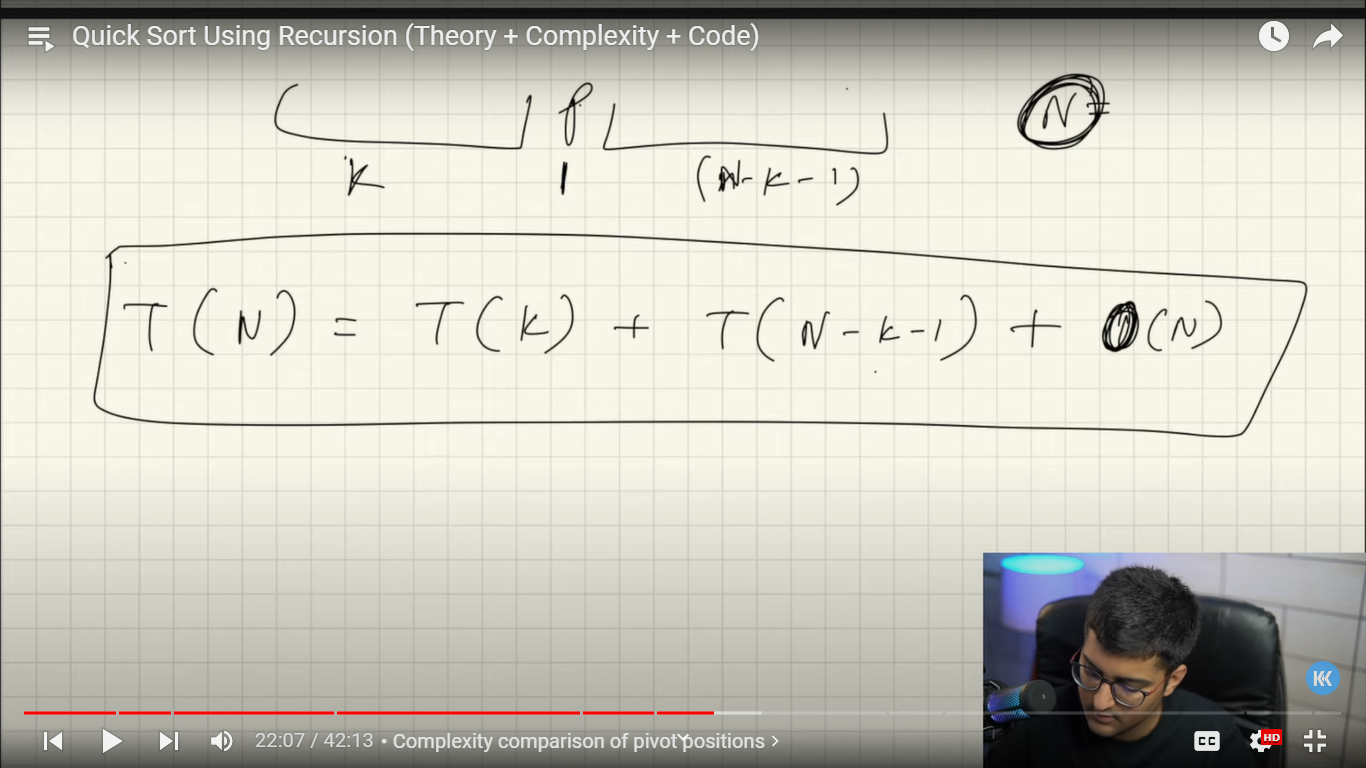 Quick Sort Using Recursion (Theory + Complexity + Code)
P N=
K 1 (N-K-1)
T(N) = T(K) + T(N-K-1) + O(N)
22:07 / 42:13 • Complexity comparison of pivot positions >
CC HD